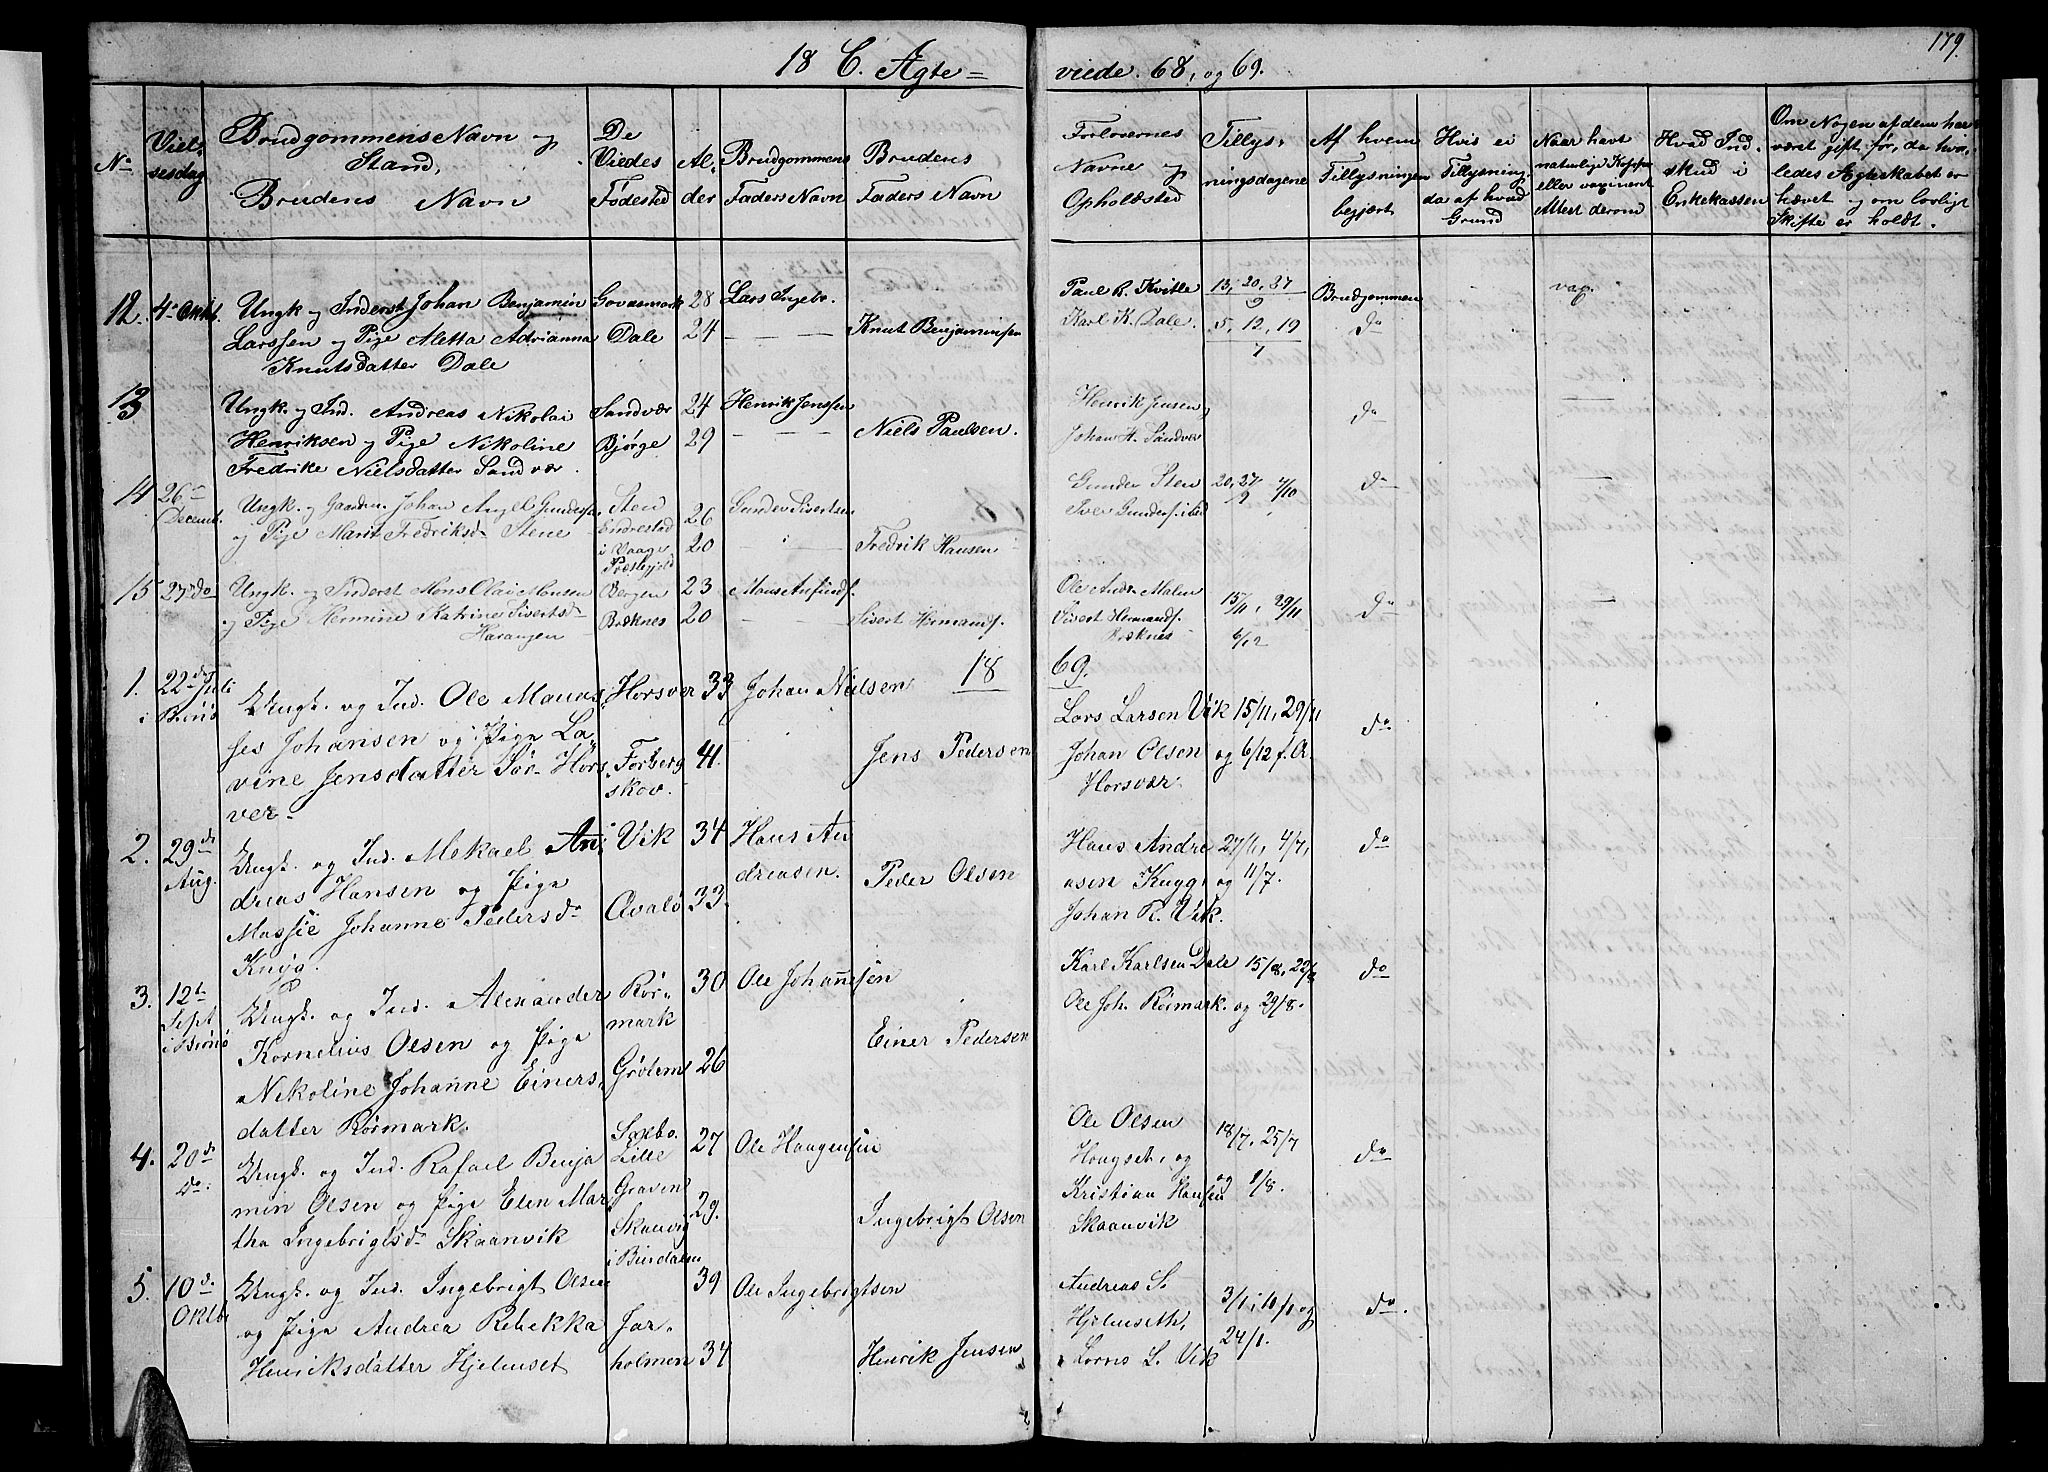 179.
18 C. Ægte= viede. 68, og 69.
No
Viel-
sesdag
Brudgommens Navn og
Stand,
Brudens Navn
De
Viedes
Fødested
Al-
der
Brudgommens
Faders Navn
Brudens
Faders Navn
Forlovernes
Navne og
Opholdsted
Tillys-
ningsdagene
Af hvem
Tillysningen
begjært
Hvis ei
Tillysning,
da af hvad
Grund
Naar havt
naturlige Kopper
eller vaccineret
Attest derom
Hvad Ind-
skud i
Enkekassen
Om Nogen af dem har
været gift før, da hvor-
ledes Ægteskabet er
hævet og om lovligt
Skifte er holdt.
12. 4de Oktbr. Ungk og Inderst Johan Benjamin 28 Lars Ingebr. Paul R. Kvitle 13, 20, 27 Brudgommen vac.
9
Larssen og Pige Aletta Adrianna Dale 24 Knut Benjaminsen Karl K. Dale. 5, 12, 19 do
7
Knutsdatter Dale
13 Ungk. og Ind. Andreas Nikolai Sandvær 24 Henrik Jenssen Henrik Jensen, do
Henriksen og Pige Nikoline Bjørge 29 Niels Paulsen. Johan H. Sandvær
Fredrike Nielsdatter Sandvær.
14 26de Ungk. og Johan Sten 26 Gunder Sivertsen Gunder Sten 20, 27 4/10 do
9
Decemb. og Pige Marit Fredriksd. Stene Endrestad 20 Fredrik Hansen
i Vaage
Præstegjeld
15 27de do Ungk. og Inderst Mons Olai Monsen Bergen 23 Ole Andr. Malen 15/11, 29/11 do
og Pige Hermine Katrine Sivertsd. Bræknes 20 Sivert Hermands. Sivert Hermands. 6/12
18 69.
1. 22de Juli Ungk. og Ind. Ole Mauris- Horsver 33 Johan Nielsen Lars Larsen Vik 15/11, 29/11 do
ses Johansen og Pige La-
vine Jensdatter Sør-Hors- Forberg- 41. Jens Pedersen Johan Olsen og 6/12 f.A.
ver. skov. Horsvær.
2. 29de Ungk. og Ind. Mekael An- Vik 34 Hans An Hans Andre 27/11, 4/7, do
Aug. dreas Hansen og Pige dreasen. Peder Olsen asen og 11/7.
Massie Johanne Pedersd. Qvalø 33 Johan R. Vik.
3. 12te Ungk. og Ind. Alexander Rør- 30 Ole Johannesen Karl Karlsen Dale 15/8, 22/8 do
Sept mark Ole Joh. Rørmark. og 29/8.
Kornelius Olsen og Pige Einer Pedersen
Nikoline Johanne Einers- 26
datter Rørmark.
4. 20de Ungk. og Ind. Rafael Benja 27 Ole Haagensen Ole Olsen 18/7, 25/7 do
do. Lille
min Olsen og Pige Elen Mar Kristian Hansen og 1/8.
tha Ingebrigtsd. Skaanvik 29. Ingebrigt Olsen Skaanvik
i Bindalen
5. 10de Ungk. og Ind. Ingebrigt Olsen 39 Ole Ingebrigtsen Andreas S. 3/1, 10/1 og do.
Oktbr og Pige Andrea Rebekka Jar- Hjelmseth, 24/1.
Henriksdatter Hjelmset holmen 34 Henrik Jensen L. Vik